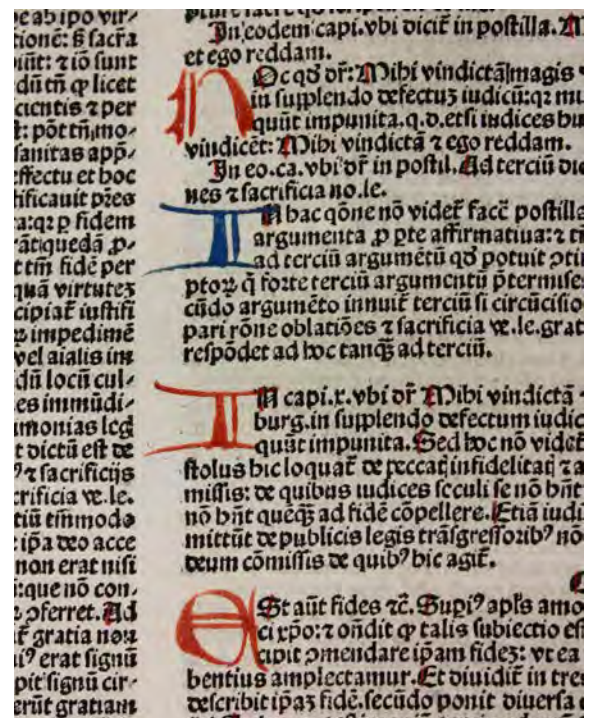 ne ab ipo vir⸗
tionē: ß sacra
iūt: ⁊ iō sunt
dū tñ ꝙ licet
cientis ⁊ per
t: pōt tñ mo⸗
sanitas app⸗
effectu et hoc
tificauit pzes
ra: qz ꝑ fidem
rātiquedā ꝓ⸗
t tm̄ fidē per
quā virtutez
cipiat̄ iustifi
impedimē
vel aialis im
dū locū cul⸗
es immūdi⸗
imonias leg
t dictū est de
⁊ sacrificijs
crificia ve.le.
tiū tm̄modo
ip̄a deo acce
non erat nisi
t: que nō con⸗
ꝯferret. Ad
gratia non
iꝰ erat signū
pit signū cir⸗
erūt gratiam
In eodem capi. vbi dicit̄ in postilla. M
et ego reddam.
Oc qd̄ dr̄: Mihi vindictā magis
in supplendo defectuz iudicū: qz mu
quūt impunita. q. d. etsi iudices hu
vindicēt: Mihi vindictā ⁊ ego reddam.
In eo. ca. vbi dr̄ in postil. Ad terciū dic
nes ⁊ sacrificia no.le.
IN hac qōne nō videt̄ facē postilla
argumenta ꝓ ꝑte affirmatiua: ⁊ tñ
ad terciū argumētū qd̄ potuit ꝯtin
ptoꝝ q̄ forte terciū argumentū p̄termise
cūdo argumēto innuit̄ terciū si circūcisio
pari rōne oblatiōes ⁊ sacrificia ve.le. grat
respōdet ad hoc tanqȝ ad terciū.
IN capi. x. vbi dr̄ Mihi vindictā
burg. in supplendo defectum iudic
quūt impunita. Sed hoc nō videt̄
stolus hic loquat̄ de peccatꝭ infidelitatꝭ ⁊ a
missis: de quibus iudices seculi se nō hn̄t
nō hn̄t quēqȝ ad fidē cōpellere. Etiā iudi
mittūt de publicis legis trāsgressoribꝰ nō
deum cōmissis de quibꝰ hic agit̄.
ESt aūt fides ⁊c̄. Supiꝰ apl̄s amo
ci xp̄o: ⁊ ōndit ꝙ talis subiectio est
cipit ꝯmendare ip̄am fidez: vt ea
bentius amplectamur. Et diuidit̄ in tres
describit ip̄az fidē. secūdo ponit diuersa